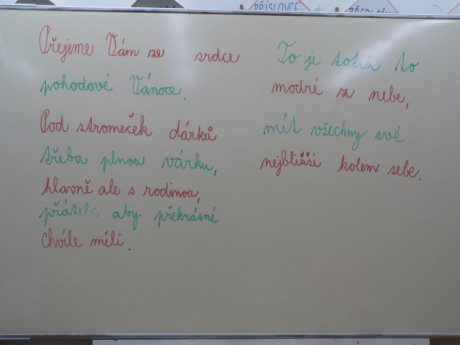 PŘÍSLOVCE
Přejeme Vám ze srdce
pohodové Vánoce.
Pod stromeček dárků
třeba plnou várku,
hlavně ale s rodinou,
přáteli, aby překrásné
chvíle měli.
To je totiž to
modré z nebe,
mít všechny své
nejbližší kolem sebe.